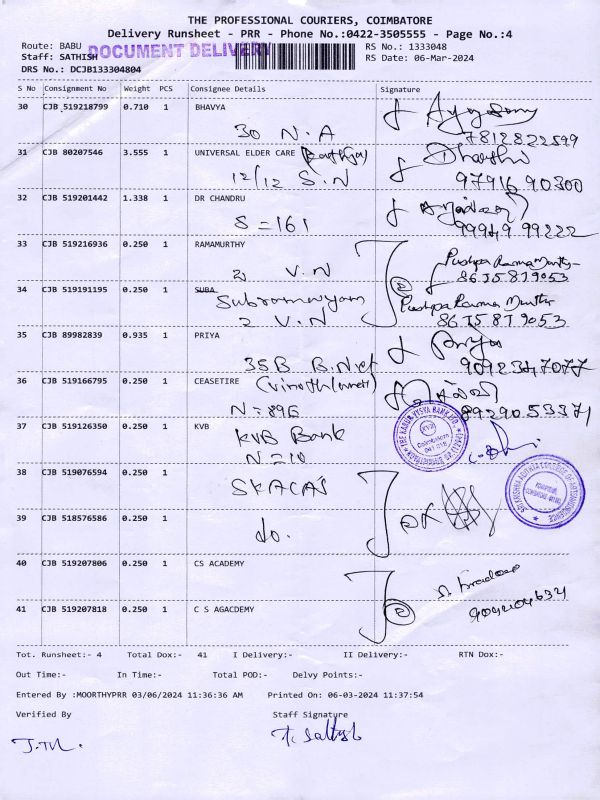 THE PROFESSIONAL COURIERS, COIMBATORE
Delivery Runsheet - PRR - Phone No.:0422-3505555 - Page No.:4
Route: BABU
DOCUMENT DELIVERY
RS No.: 1333048
Staff: SATHISH
RS Date: 06-Mar-2024
DRS No.: DCJB133304804
S No Consignment No Weight PCS Consignee Details Signature
30 CJB 519218799 0.710 1 BHAVYA
30 N.A
7812822599
31 CJB 80207546 3.555 1 UNIVERSAL ELDER CARE
12/12 S.N
97916 90300
32 CJB 519201442 1.338 1 DR CHANDRU
S=161
99949 99222
33 CJB 519216936 0.250 1 RAMAMURTHY
2 V.N
Pushpa Rama Murthy
8675819053
34 CJB 519191195 0.250 1 SUBA
Subramaniyam
2 V.N
Pushpa Rama Murthy
8675819053
35 CJB 89982839 0.935 1 PRIYA
Priya
35B B.Nct
9092347077
36 CJB 519166795 0.250 1 CEASETIRE
N=896
8929053371
37 CJB 519126350 0.250 1 KVB
KVB Bank
N=10
THE KARUR VYSYA BANK LTD.
KVB
38 CJB 519076594 0.250 1
SKACAS
SRI KRISHNA ADITHYA COLLEGE OF ARTS AND SCIENCE
39 CJB 518576586 0.250 1
do.
40 CJB 519207806 0.250 1 CS ACADEMY
41 CJB 519207818 0.250 1 C S AGACDEMY
Tot. Runsheet:- 4 Total Dox:- 41 I Delivery:- II Delivery:- RTN Dox:-
Out Time:- In Time:- Total POD:- Delvy Points:-
Entered By :MOORTHYPRR 03/06/2024 11:36:36 AM Printed On: 06-03-2024 11:37:54
Verified By Staff Signature